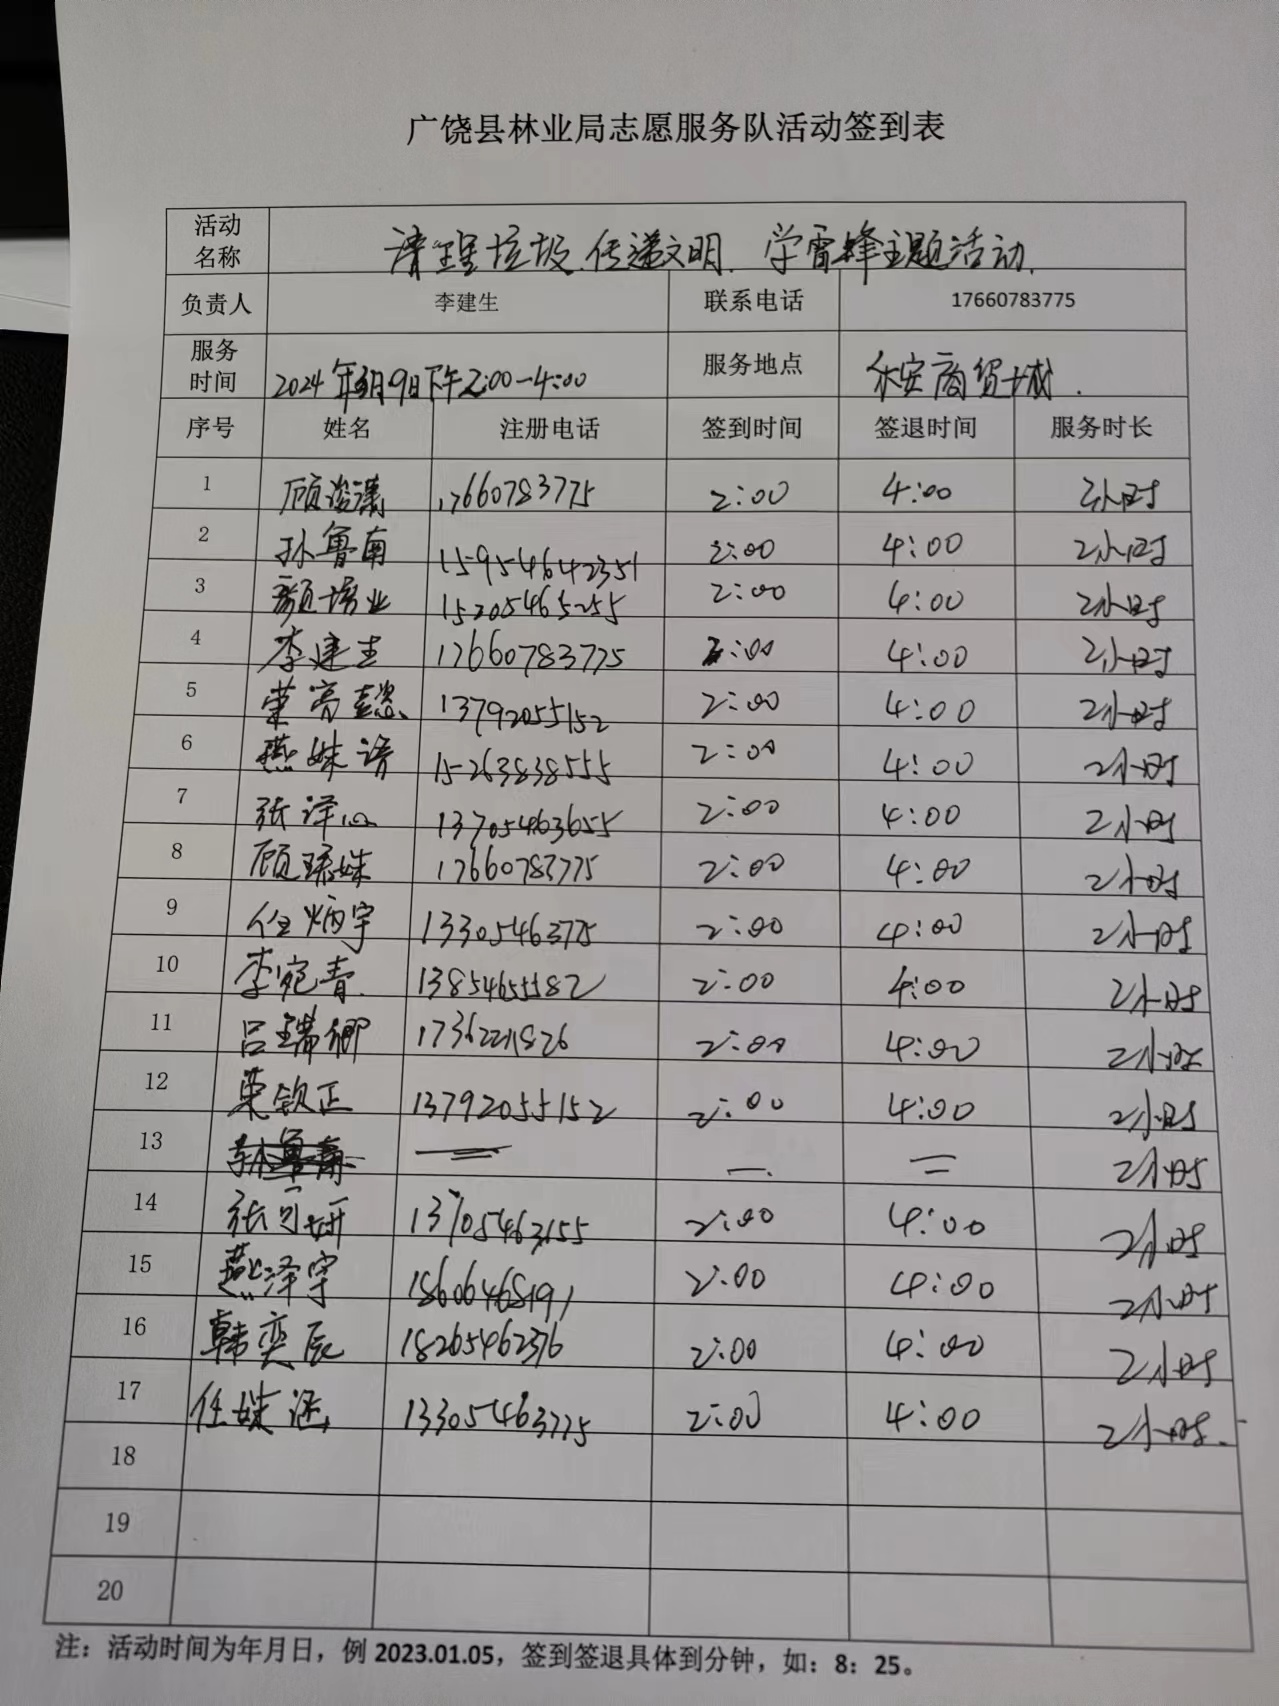 广饶县林业局志愿服务队活动签到表
活动名称 清理垃圾.传递文明. 学雷锋主题活动.
负责人 李建生 联系电话 17660783775
服务时间 2024年3月9日下午2:00-4:00 服务地点 乐安商贸城.
序号 姓名 注册电话 签到时间 签退时间 服务时长
1 顾浚潇 17660783775 2:00 4:00 2小时
2 孙鲁南 15954642351 2:00 4:00 2小时
3 颜培业 15205465255 2:00 4:00 2小时
4 李建生 17660783775 2:00 4:00 2小时
5 荣亮懿 13792055152 2:00 4:00 2小时
6 燕姝诺 15263838555 2:00 4:00 2小时
7 张译心 13705463655 2:00 4:00 2小时
8 顾臻姝 17660783775 2:00 4:00 2小时
9 任炳宇 13305463775 2:00 4:00 2小时
10 李宛青. 1385465582 2:00 4:00 2小时
11 吕瑞卿 2:00 4:00 2小时
12 荣钦正 13792055152 2:00 4:00 2小时
13 孙鲁南 2小时
14 张可妍 13705463155 2:00 4:00 2小时
15 燕泽宇 18606468191 2:00 4:00 2小时
16 韩奕辰 18265462376 2:00 4:00 2小时
17 任姝涵 13305463775 2:00 4:00 2小时.
18
19
20
注：活动时间为年月日，例 2023.01.05，签到签退具体到分钟，如：8：25。